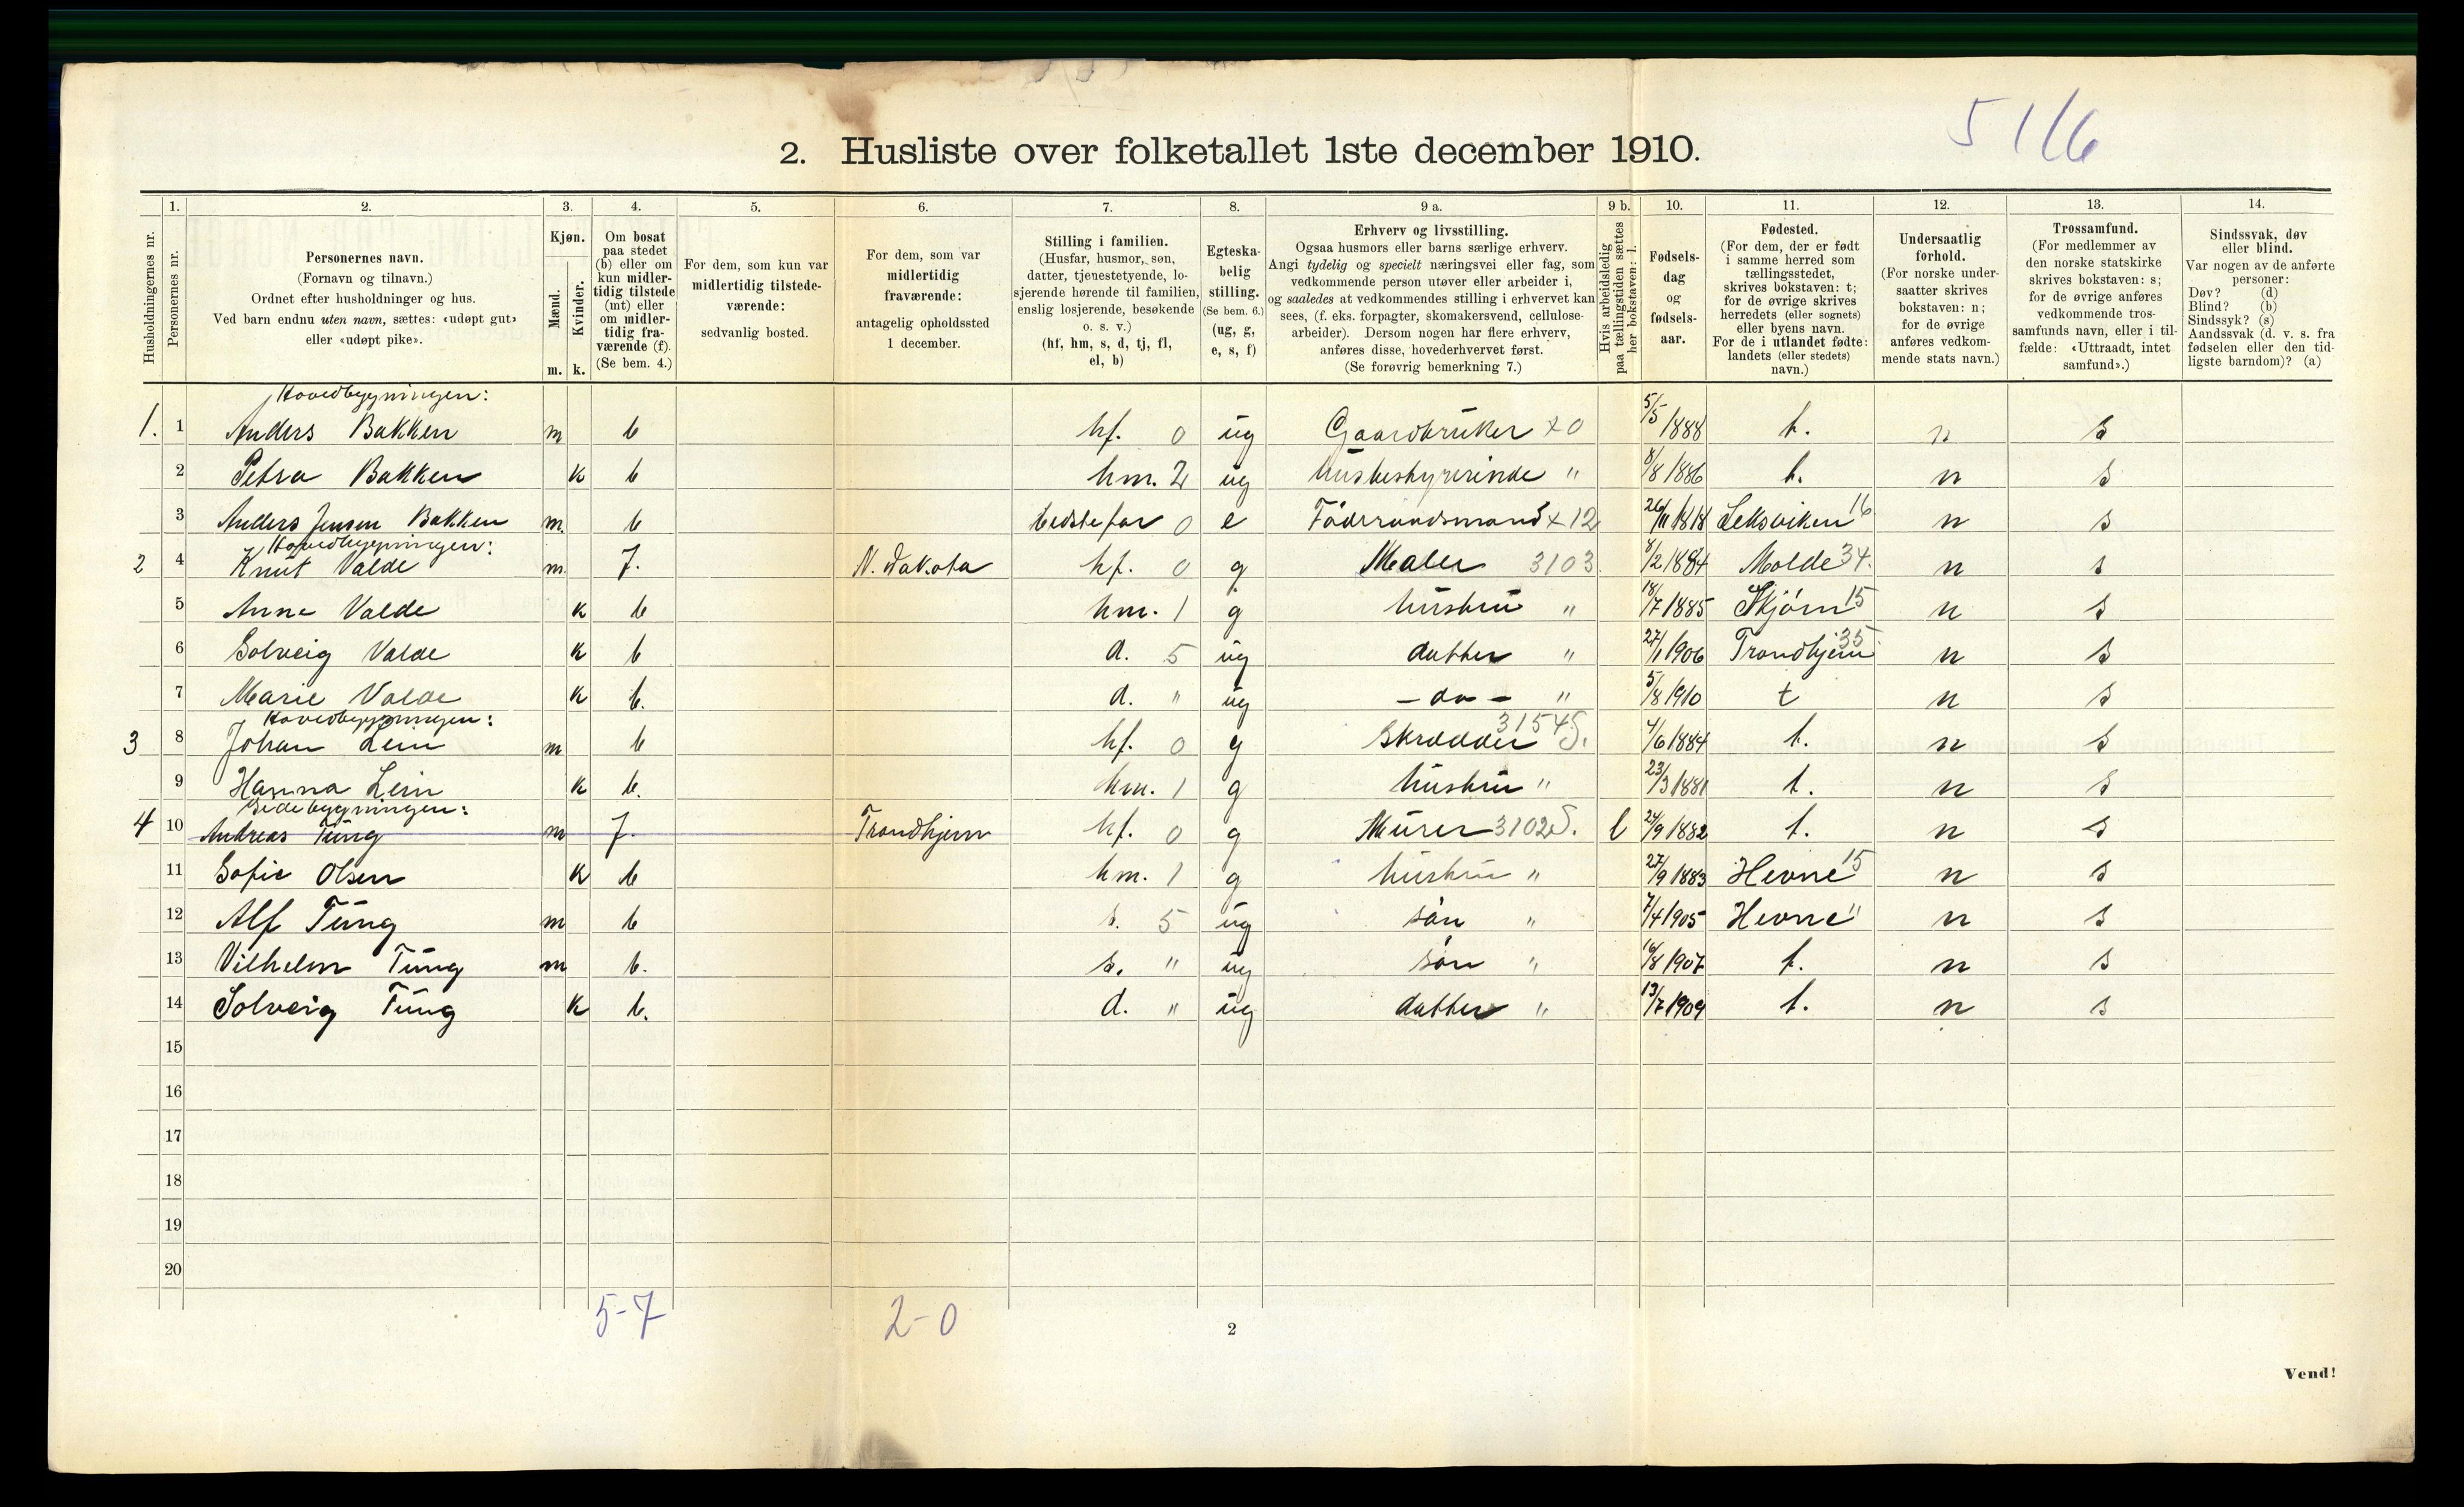 5 1/6
2. Husliste over folketallet 1ste december 1910.
Husholdningernes nr.
1. Personernes nr.
2. Personernes navn.
(Fornavn og tilnavn.)
Ordnet efter husholdninger og hus.
Ved barn endnu uten navn, sættes: «udøpt gut»
eller «udøpt pike».
3. Kjøn.
Mænd. Kvinder.
m. k.
4. Om bosat
paa stedet
(b) eller om
kun midler-
tidig tilstede
(mt) eller
om midler-
tidig fra-
værende (f).
(Se bem. 4.)
5. For dem, som kun var
midlertidig tilstede-
værende:
sedvanlig bosted.
6. For dem, som var
midlertidig
fraværende:
antagelig opholdssted
1 december.
7. Stilling i familien.
(Husfar, husmor, søn,
datter, tjenestetyende, lo-
sjerende hørende til familien,
enslig losjerende, besøkende
o. s. v.)
(hf, hm, s, d, tj, fl,
el, b)
8. Egteska-
belig
stilling.
(Se bem. 6.)
(ug, g,
e, s, f)
9 a. Erhverv og livsstilling.
Ogsaa husmors eller barns særlige erhverv.
Angi tydelig og specielt næringsvei eller fag, som
vedkommende person utøver eller arbeider i,
og saaledes at vedkommendes stilling i erhvervet kan
sees, (f. eks. forpagter, skomakersvend, cellulose-
arbeider). Dersom nogen har flere erhverv,
anføres disse, hovederhvervet først.
(Se forøvrig bemerkning 7.)
9 b. Hvis arbeidsledig
paa tællingstiden sættes
her bokstaven: l.
10. Fødsels-
dag
og
fødsels-
aar.
11. Fødested.
(For dem, der er født
i samme herred som
tællingsstedet,
skrives bokstaven: t;
for de øvrige skrives
herredets (eller sognets)
eller byens navn.
For de i utlandet fødte:
landets (eller stedets)
navn.)
12. Undersaatlig
forhold.
(For norske under-
saatter skrives
bokstaven: n;
for de øvrige
anføres vedkom-
mende stats navn.)
13. Trossamfund.
(For medlemmer av
den norske statskirke
skrives bokstaven: s;
for de øvrige anføres
vedkommende tros-
samfunds navn, eller i til-
fælde: «Uttraadt, intet
samfund».)
14. Sindssvak, døv
eller blind.
Var nogen av de anførte
personer:
Døv? (d)
Blind? (b)
Sindssyk? (s)
Aandssvak (d. v. s. fra
fødselen eller den tid-
ligste barndom)? (a)
Hovedbygningen:
1. 1 Anders Bakken m b hf. 0 ug Gaardbruker x0 5/5 1888 t. n s
2 Petra Bakken k b hm. 2 ug husbestyrerinde " 8/8 1886 t. n s
3 Anders Jensen Bakken m. b bedstefar 0 e Föderaadsmand x 12 26/11 1818 Leksviken 16 n s
Hovedbygningen:
2 4 Knut Valde m. f. N. Dakota hf. 0 g Maler 3103 8/2 1884 Molde 34. n s
5 Anne Valde k b hm. 1 g hustru " 18/7 1885 Skjörn 15 n s
6 Solveig Valde k b d. 5 ug datter " 27/1 1906 Trondhjem 35 n s
7 Marie Valde k b. d. " ug - do - " 5/8 1910 t n s
Hovedbygningen:
3 8 Johan Lein m b hf. 0 g Skrædder 3154 S. 4/6 1884 t. n s
9 Hanna Lein k b. hm. 1 g hustru " 23/3 1881 t. n s
Sidebygningen:
4 10 Andreas Tung m f. Trondhjem hf. 0 g Murer 3102 S. l 24/9 1882 t. n s
11 Sofie Olsen k b hm. 1 g hustru " 27/9 1883 Hevne 15 n s
12 Alf Tung m b s. 5 ug sön " 7/4 1905 Hevne " n s
13 Vilhelm Tung m b. s. " ug sön " 16/8 1907 t. n s
14 Solveig Tung k b. d. " ug datter " 13/7 1909 t. n s
15
16
17
18
19
20
5-7 2-0
2
Vend!